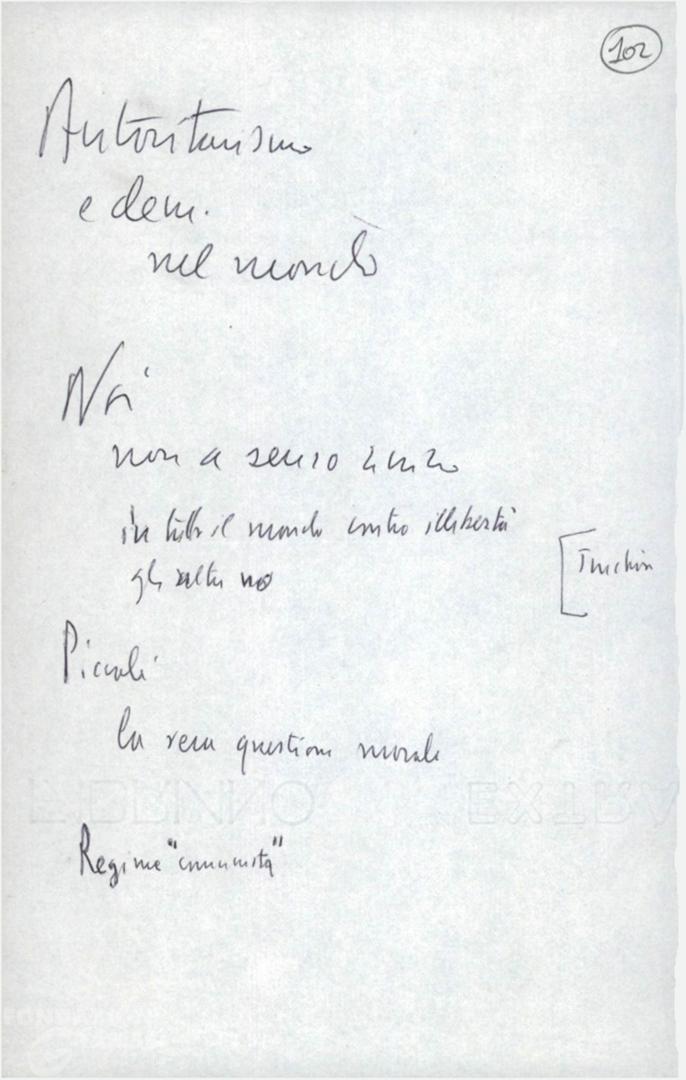 102
Autoritarismo
e dem.
nel mondo
Noi
non a senso unico
in tutto il mondo contro illibertà
gli altri no
Piccoli
la vera questione morale
Regime "comunità"
EXTRA